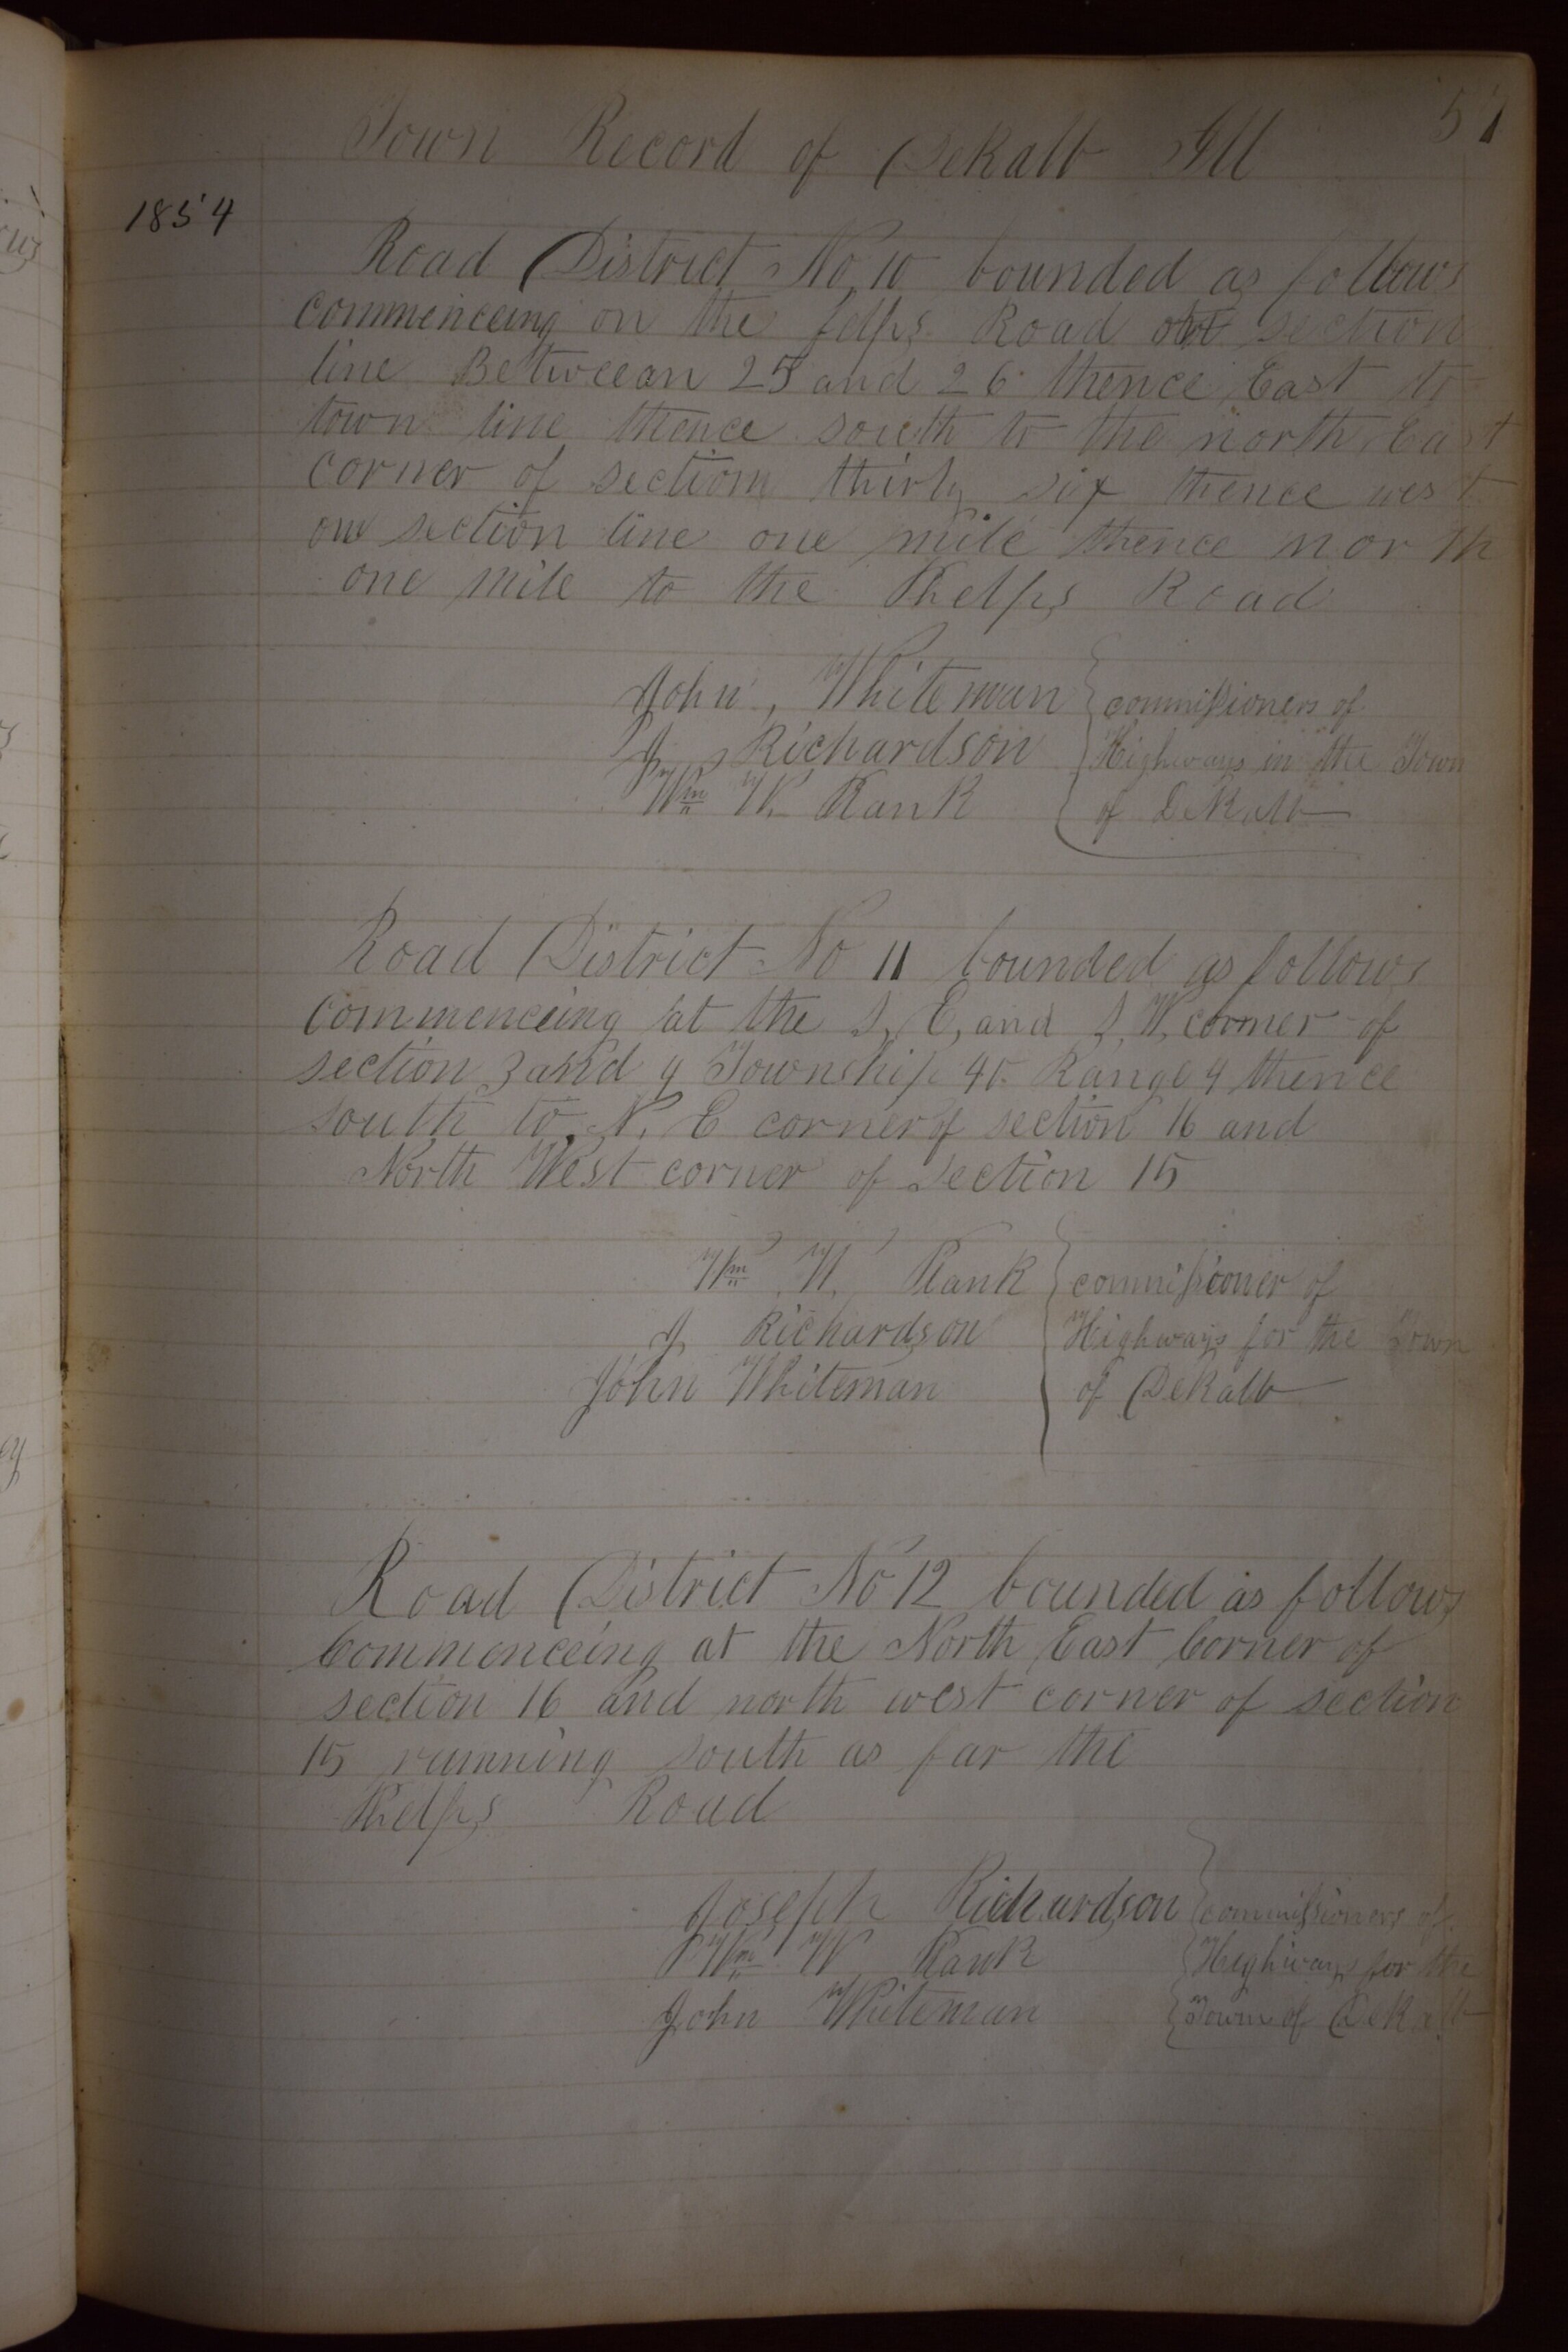 51
Town Record of DeKalb Ill
1854
Road District No, 10 bounded as follows
commenceing on the felps Road section
line Betweean 25 and 26 thence East to
town line thence south to the north East
corner of section thirty six thence west
on section line one mile thence north
one mile to the Phelps Road
John, Whiteman } commissioners of
J, Richardson } Highways in the Town
Wm W. Rank } of DeKalb
Road District No 11 bounded as follows
commenceing at the S, E, and S, W, corner of
section 3 and 4 Township 40 Range 4 thence
south to N. E corner of section 16 and
North West corner of section 15
Wm W. Rank } commissioner of
J, Richardson } Highways for the Town
John Whiteman } of DeKalb
Road District No 12 bounded as follows
Commenceing at the North East Corner of
section 16 and north west corner of section
15 running south as far the
Phelps Road
Joseph Richardson } commissioners of
Wm W Rank } Highways for the
John Whiteman } Town of DeKalb